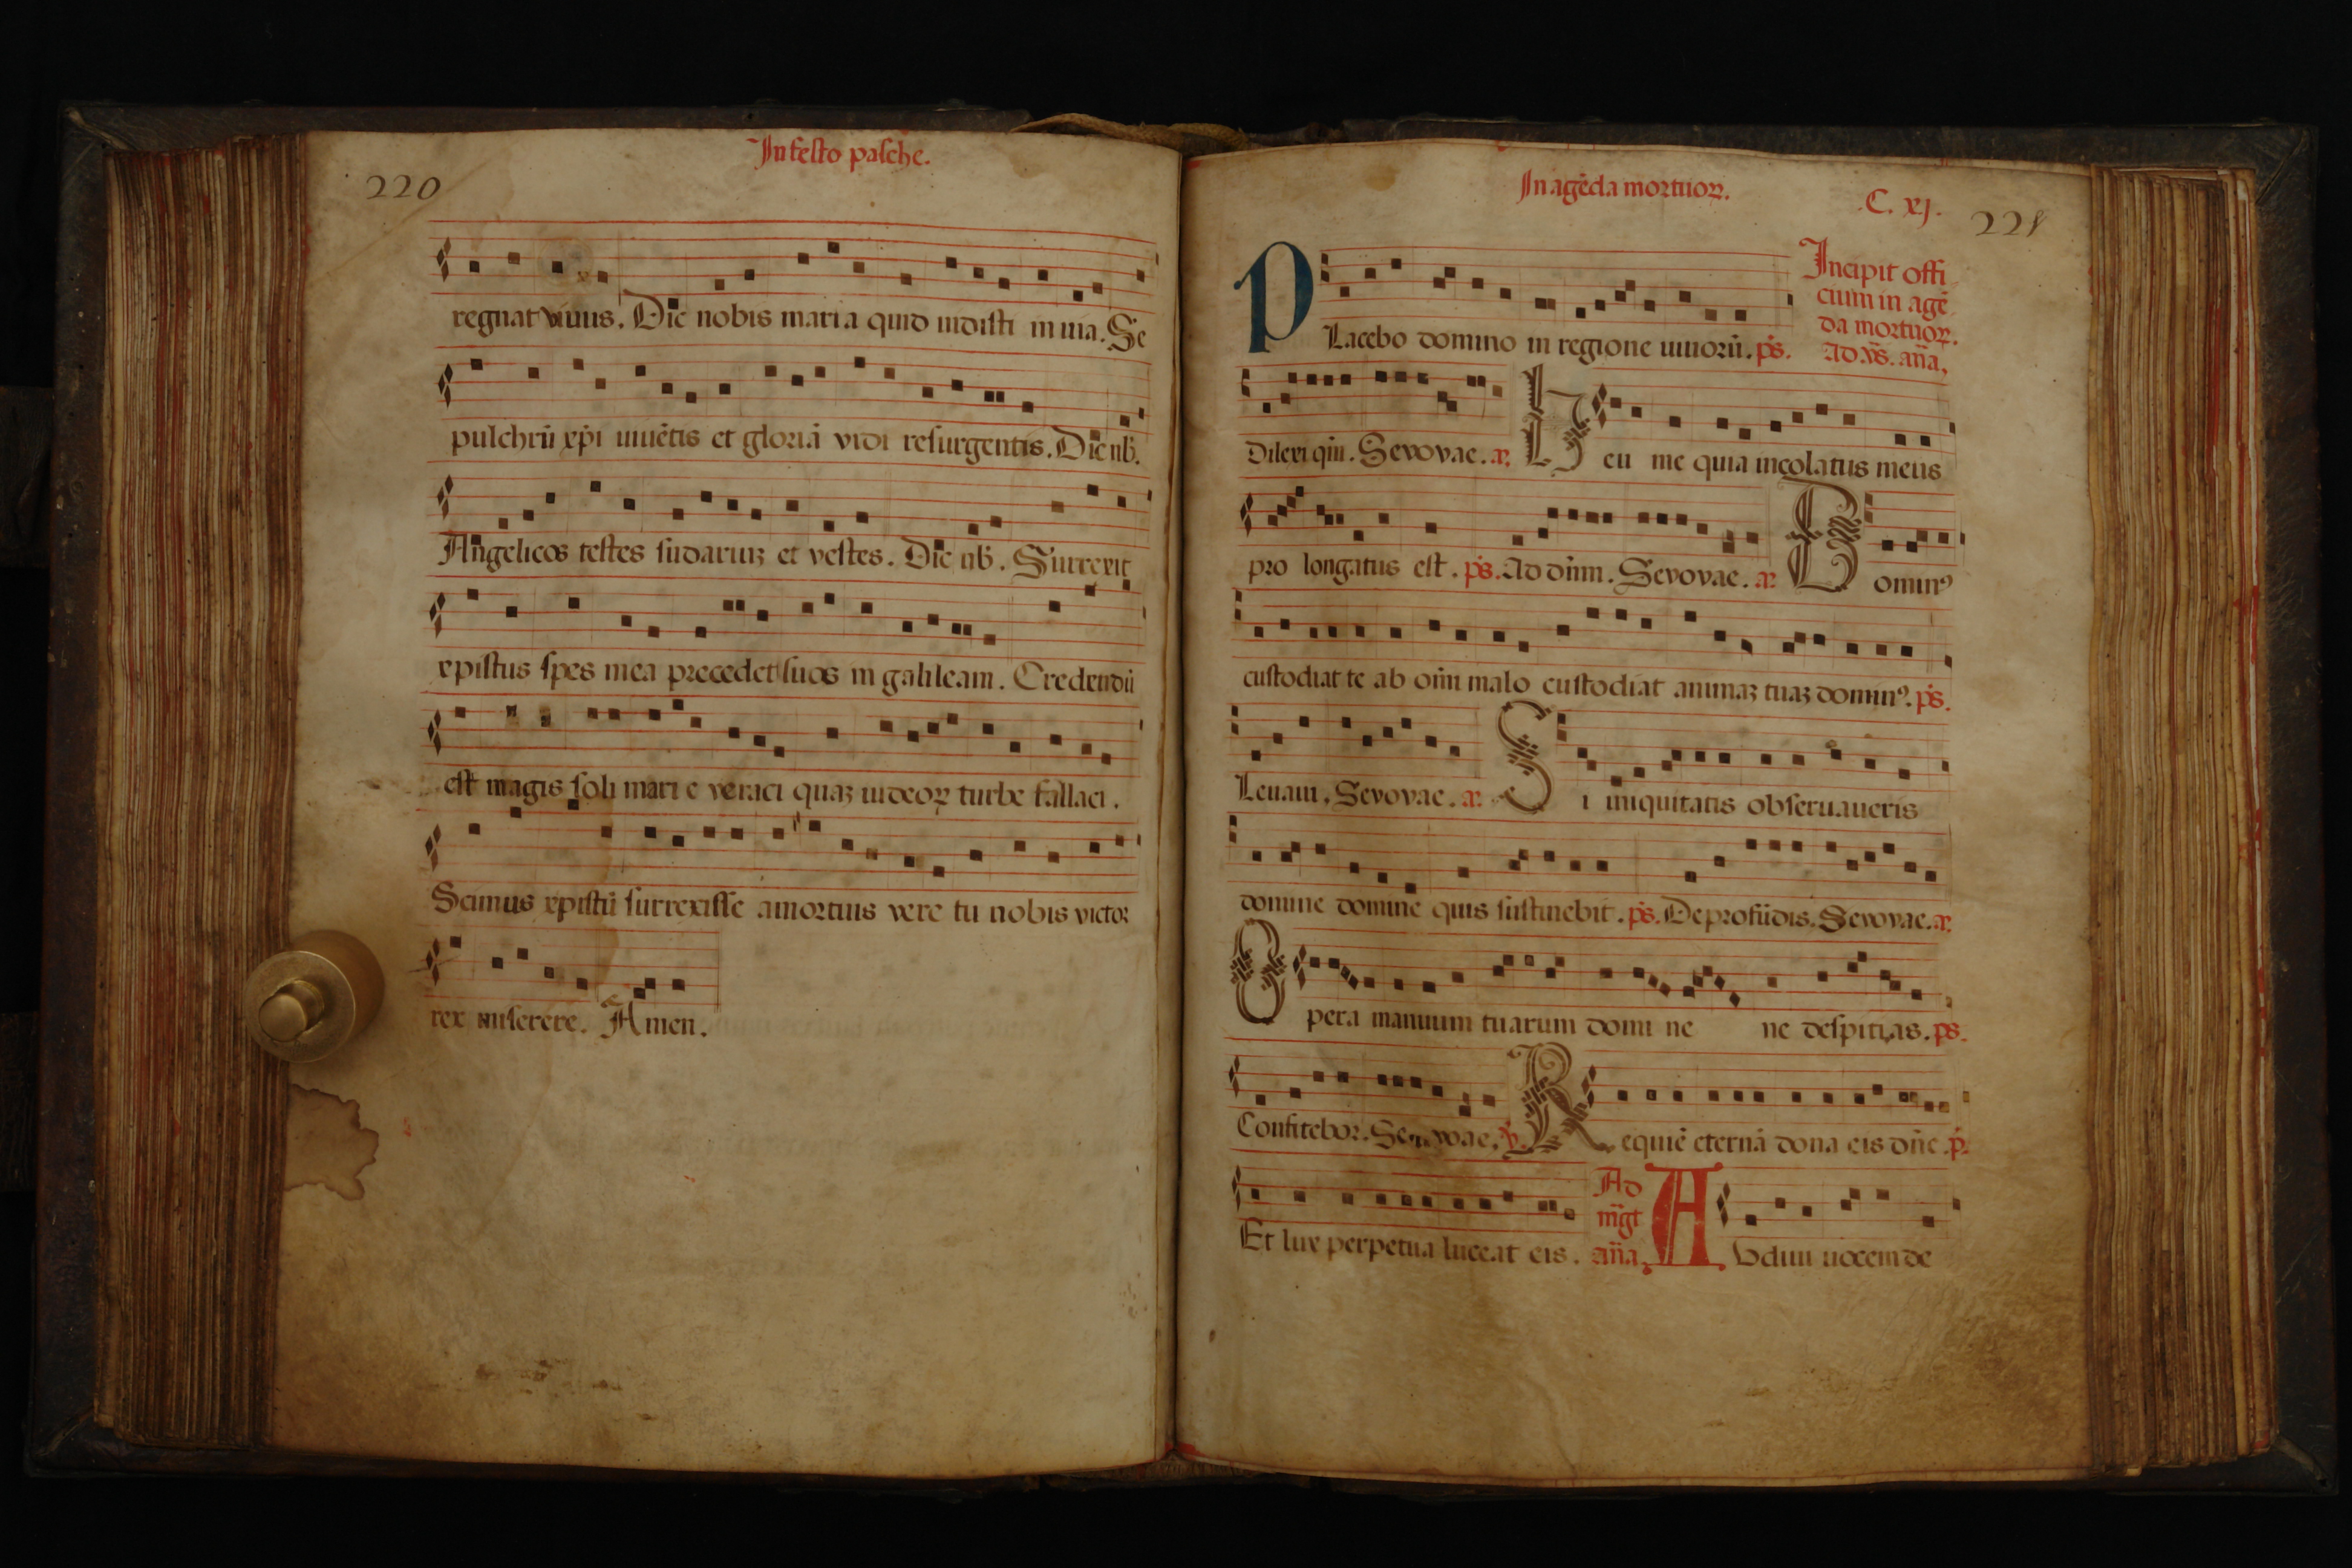 In festo pasche.
220
regnat viuus. Dic nobis maria quid uidisti in uia. Se
pulchrū xp̄i uiuētis et gloriā vidi resurgentis. Dic nb̄.
Angelicos testes sudariuꝫ et vestes. Dic nb̄. Surrexit
xpistus spes mea precedet suos in galileam. Credendū
est magis soli mari e veraci quaꝫ iudeoꝝ turbe fallaci.
Scimus xpistū surrexisse amortuis vere tu nobis victor
rex miserere. Amen.
In agēda mortuoꝝ.
C. xj.
221
PLacebo domino in regione uiuorū. ps̄.
Incipit offi
cium in agē
da mortuoꝝ.
Ad vs̄. an̄a,
Dilexi qm̄. Sevovae. a.
Heu me quia incolatus meus
pro longatus est. ps̄. Ad dn̄m. Sevovae. a.
Dominꝰ
custodiat te ab om̄i malo custodiat animaꝫ tuaꝫ dominꝰ. ps̄.
Leuaui. Sevovae. a.
Si iniquitatis obseruaueris
domine domine quis sustinebit. ps̄. De profūdis. Sevovae. a.
Opera manuum tuarum domi ne ne despitias. ps.
Confitebor. Sevovae. ℣.
Requiē eternā dona eis dn̄e. p̄.
Et lux perpetua luceat eis.
Ad
mḡt
an̄a,
Avdiui uocem de